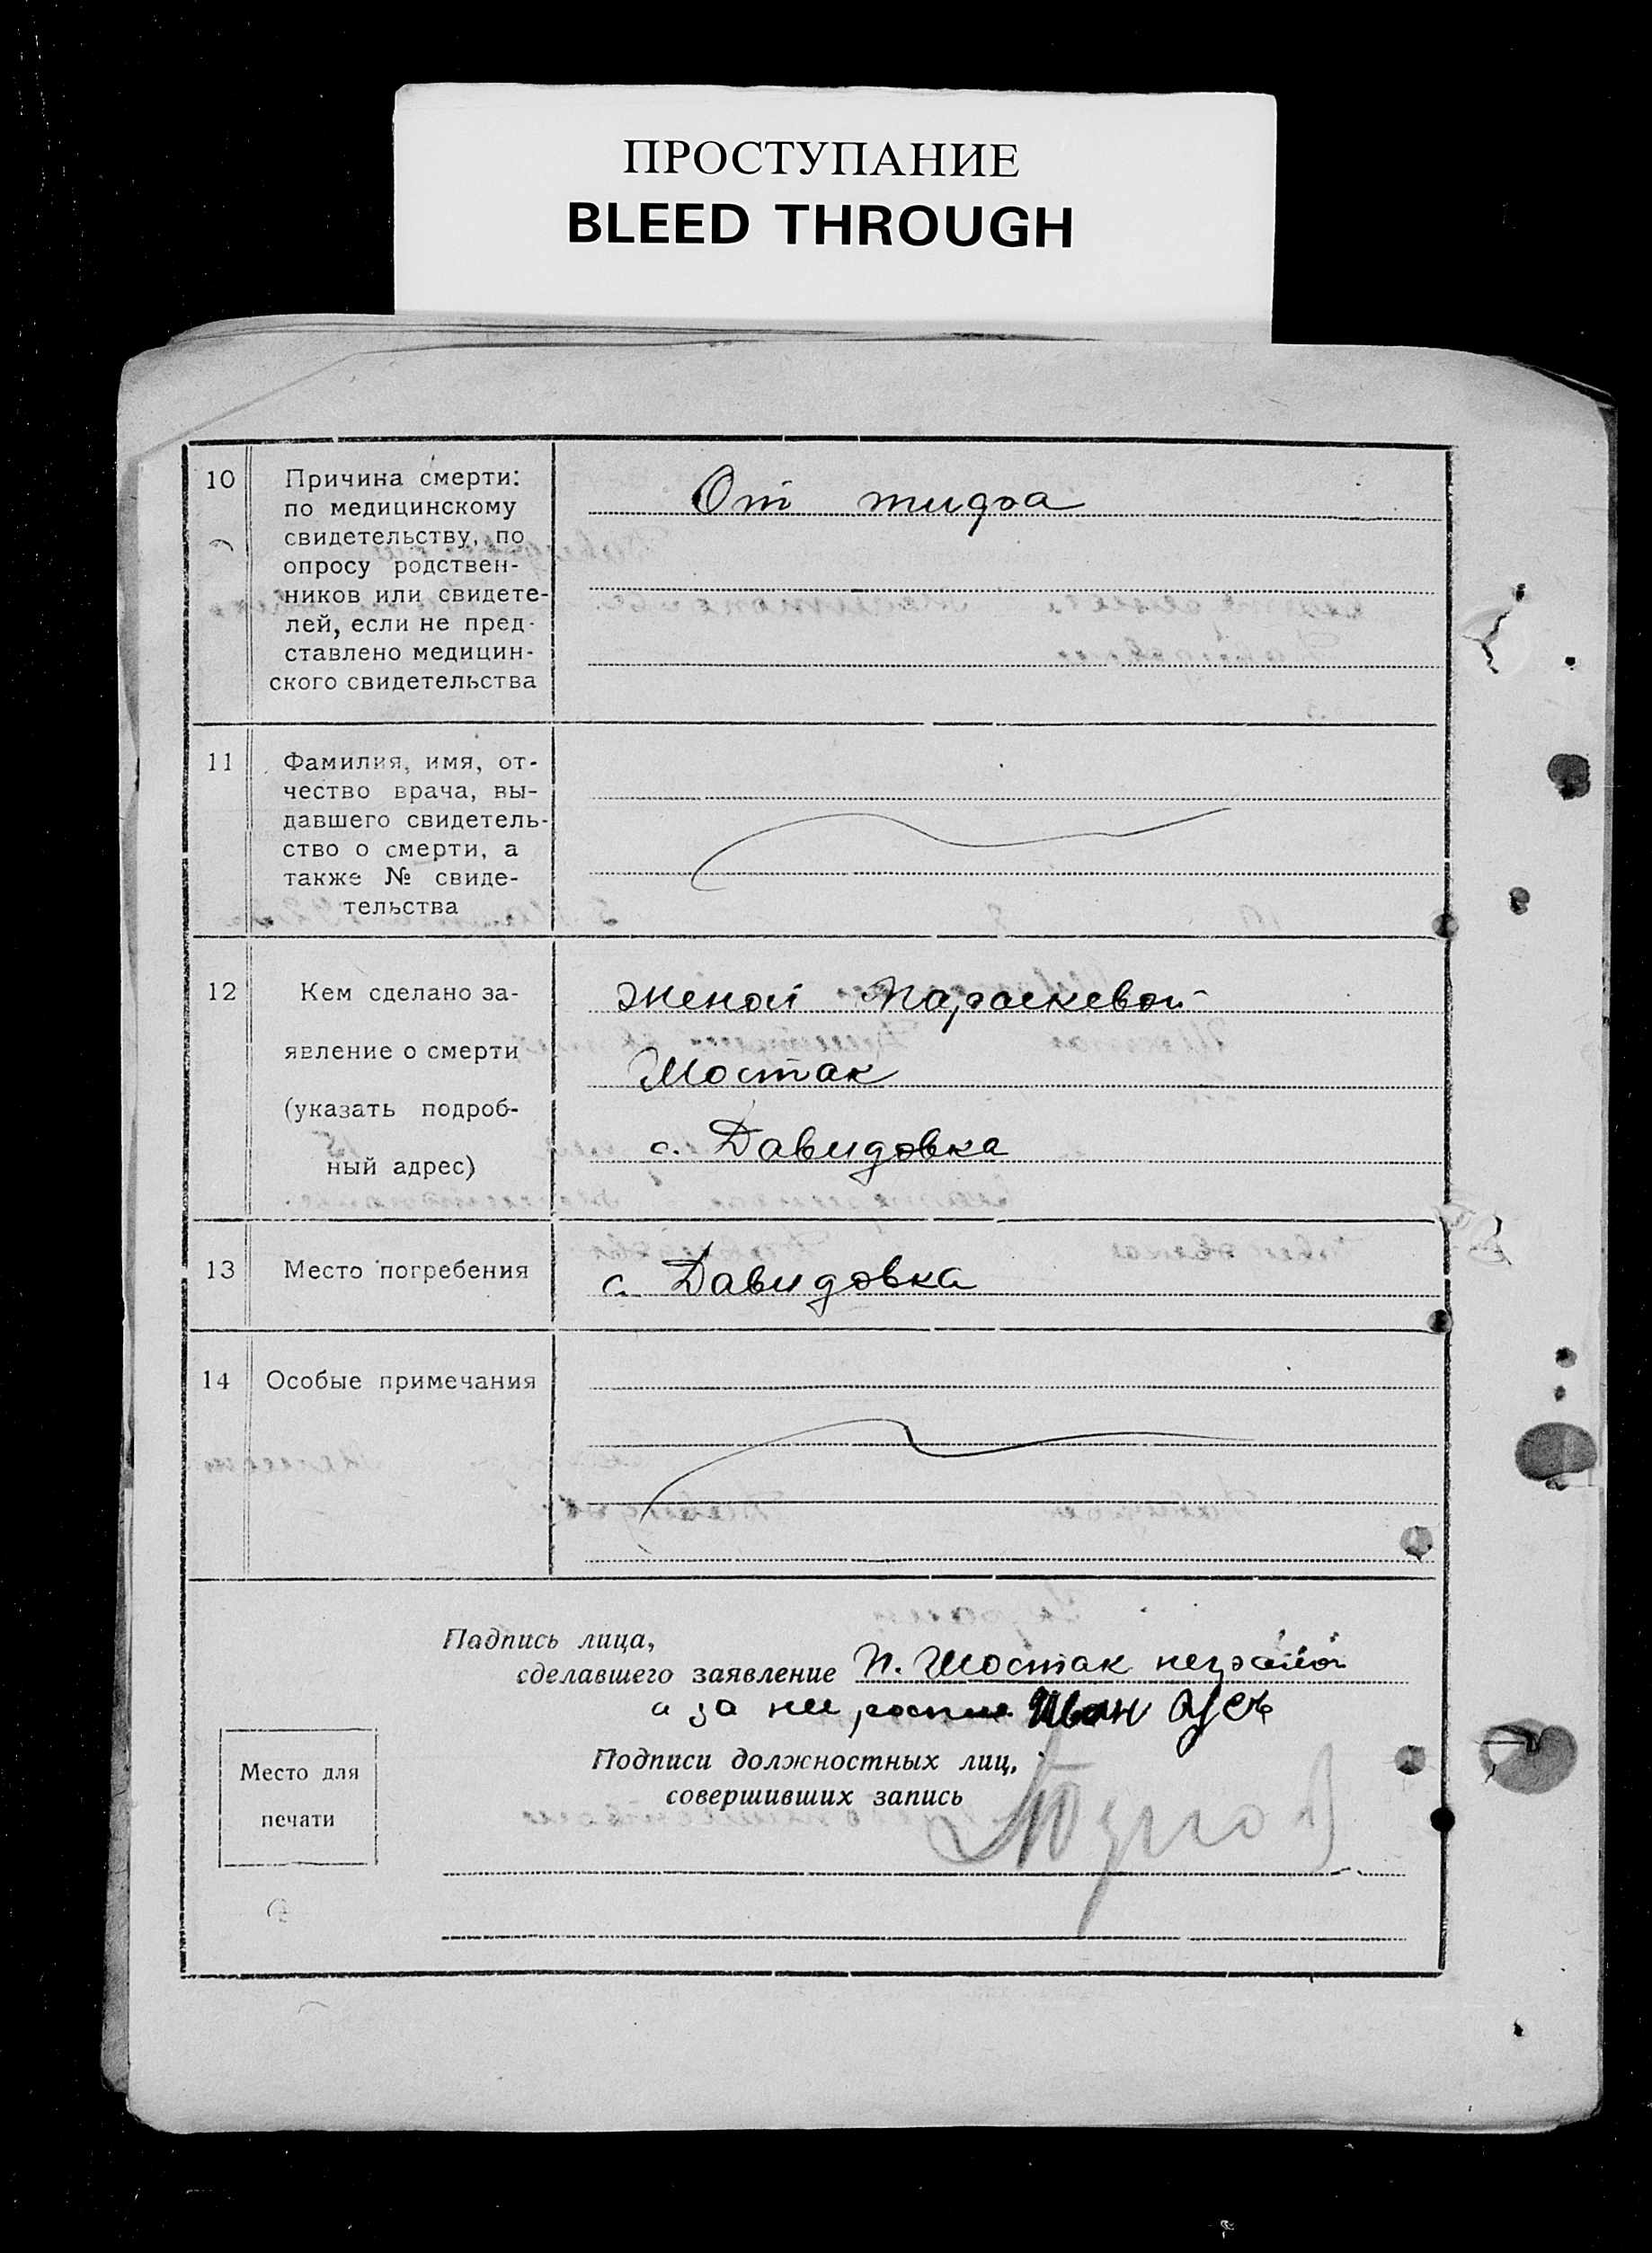 ПРОСТУПАНИЕ
BLEED THROUGH
10 Причина смерти:
по медицинскому
свидетельству, по
опросу родствен-
ников или свидете-
лей, если не пред-
ставлено медицин-
ского свидетельства
От тифа
11 Фамилия, имя, от-
чество врача, вы-
давшего свидетель-
ство о смерти, а
также № свиде-
тельства
12 Кем сделано за-
явление о смерти
(указать подроб-
ный адрес)
Женой Параскевой
Шостак
с. Давидовка
13 Место погребения
с. Давидовка
14 Особые примечания
Падпись лица,
сделавшего заявление П. Шостак
а за нее Иван
Подписи должностных лиц,
совершивших запись
Место для
печати